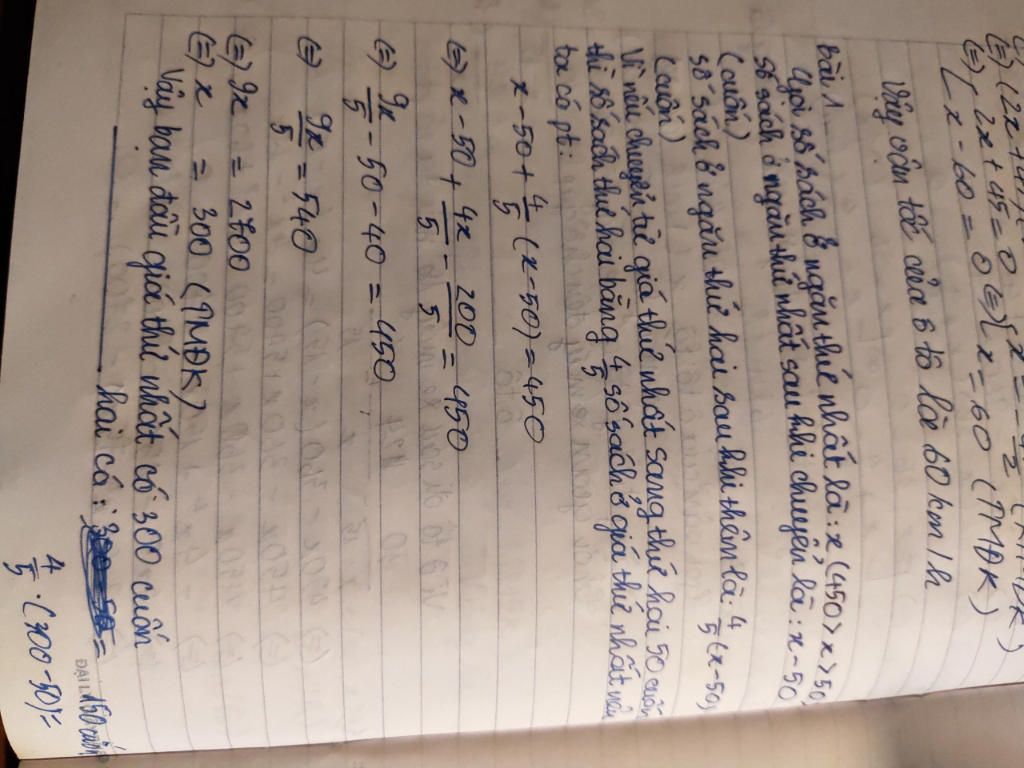 (=) (2x + 45 = 0 (=) [ x = -
[ x - 60 = 0 [ x = 60 (TMĐK)
Vậy vận tốc của ô tô là 60 km/h
Bài 1.
Gọi số sách ở ngăn thứ nhất là: x (450 > x > 50)
số sách ở ngăn thứ nhất sau khi chuyển là: x - 50
(cuốn)
số sách ở ngăn thứ hai sau khi thêm là: 4/5 (x - 50)
(cuốn)
Vì nếu chuyển từ giá thứ nhất sang thứ hai 50 cuốn
thì số sách thứ hai bằng 4/5 số sách ở giá thứ nhất nên
ta có pt:
x - 50 + 4/5 (x - 50) = 450
(=) x - 50 + 4x/5 - 200/5 = 450
(=) 9x/5 - 50 - 40 = 450
(=) 9x/5 = 540
(=) 9x = 2700
(=) x = 300 (TMĐK)
Vậy ban đầu giá thứ nhất có 300 cuốn
hai có: = 150 cuốn
4/5 . (300 - 50) =